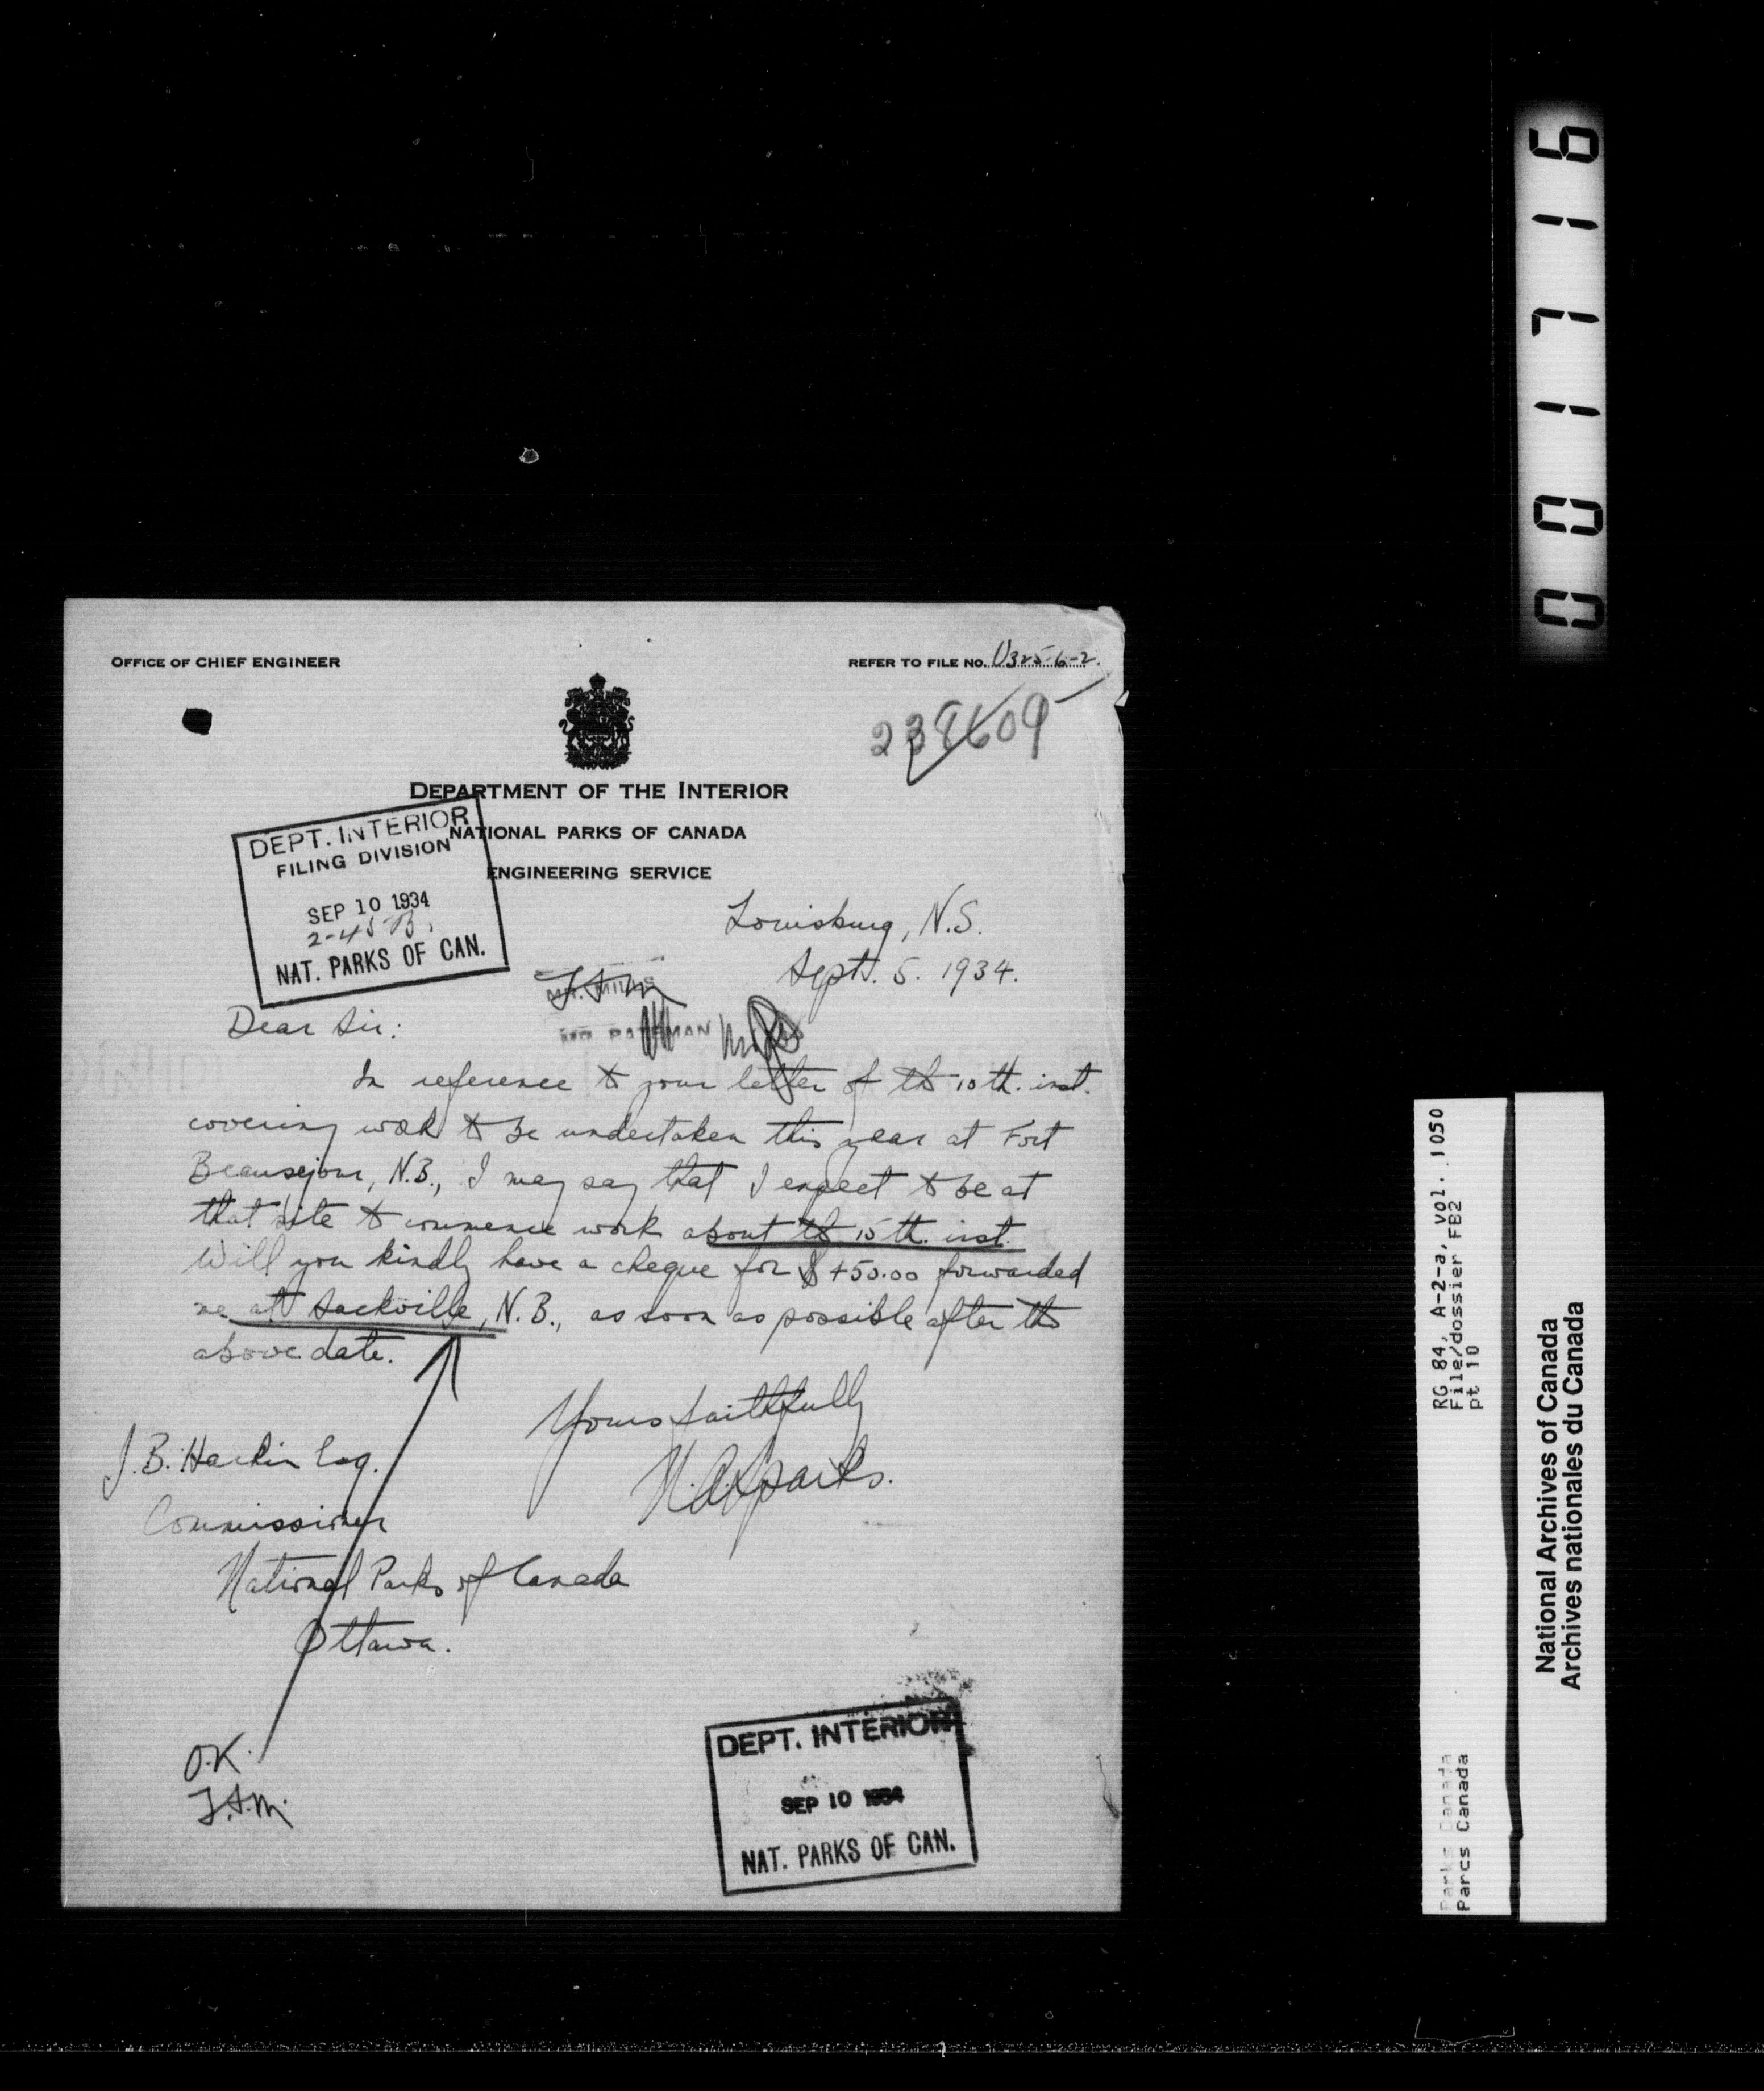 OFFICE OF CHIEF ENGINEER
REFER TO FILE NO. U325-6-2.
238609
DEPARTMENT OF THE INTERIOR
NATIONAL PARKS OF CANADA
ENGINEERING SERVICE
DEPT. INTERIOR
FILING DIVISION
SEP 10 1934
NAT. PARKS OF CAN.
Louisburg, N.S.
Sept. 5. 1934.
MR. MILLS
MR. PATEMAN
Dear Sir:
In reference to your letter of the 10th. inst.
covering work to be undertaken this year at Fort
Beausejour, N.B., I may say that I expect to be at
that site to commence work about the 15th. inst.
Will you kindly have a cheque for $450.00 forwarded
me at Sackville, N.B., as soon as possible after the
above date.
Yours faithfully
J.B. Harkin Esq.
Commissioner
National Parks of Canada
Ottawa.
O.K.
DEPT. INTERIOR
SEP 10 1934
NAT. PARKS OF CAN.
001716
RG 84, A-2-a, vol. 1050
File/dossier FB2
pt 10
Parks Canada
Parcs Canada
National Archives of Canada
Archives nationales du Canada